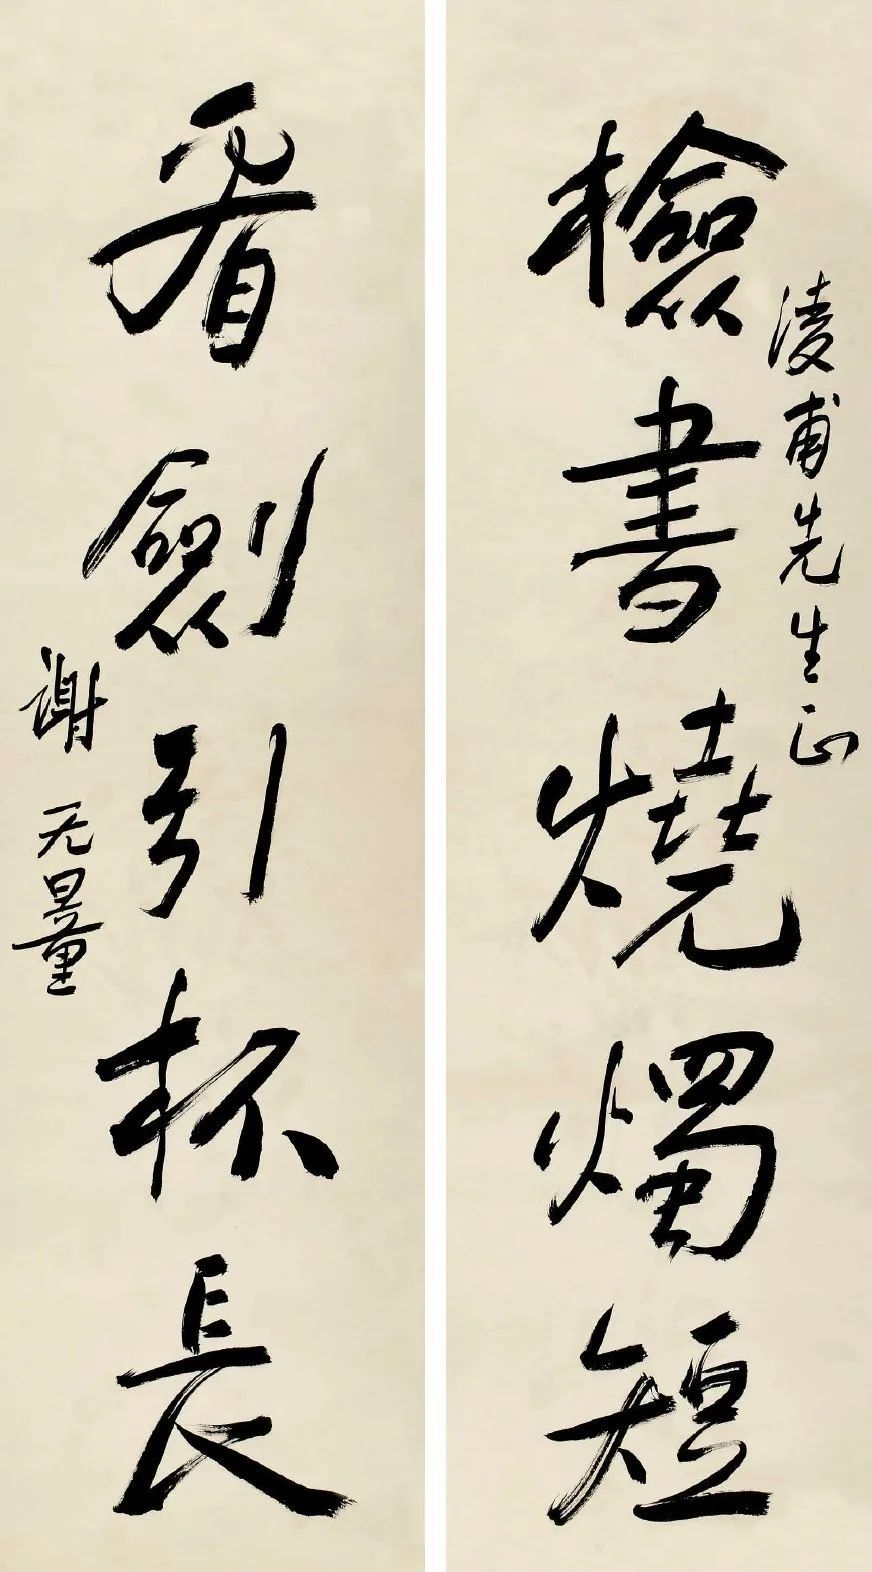 檢書燒燭短
淩甫先生正
看劍引杯長
謝无量